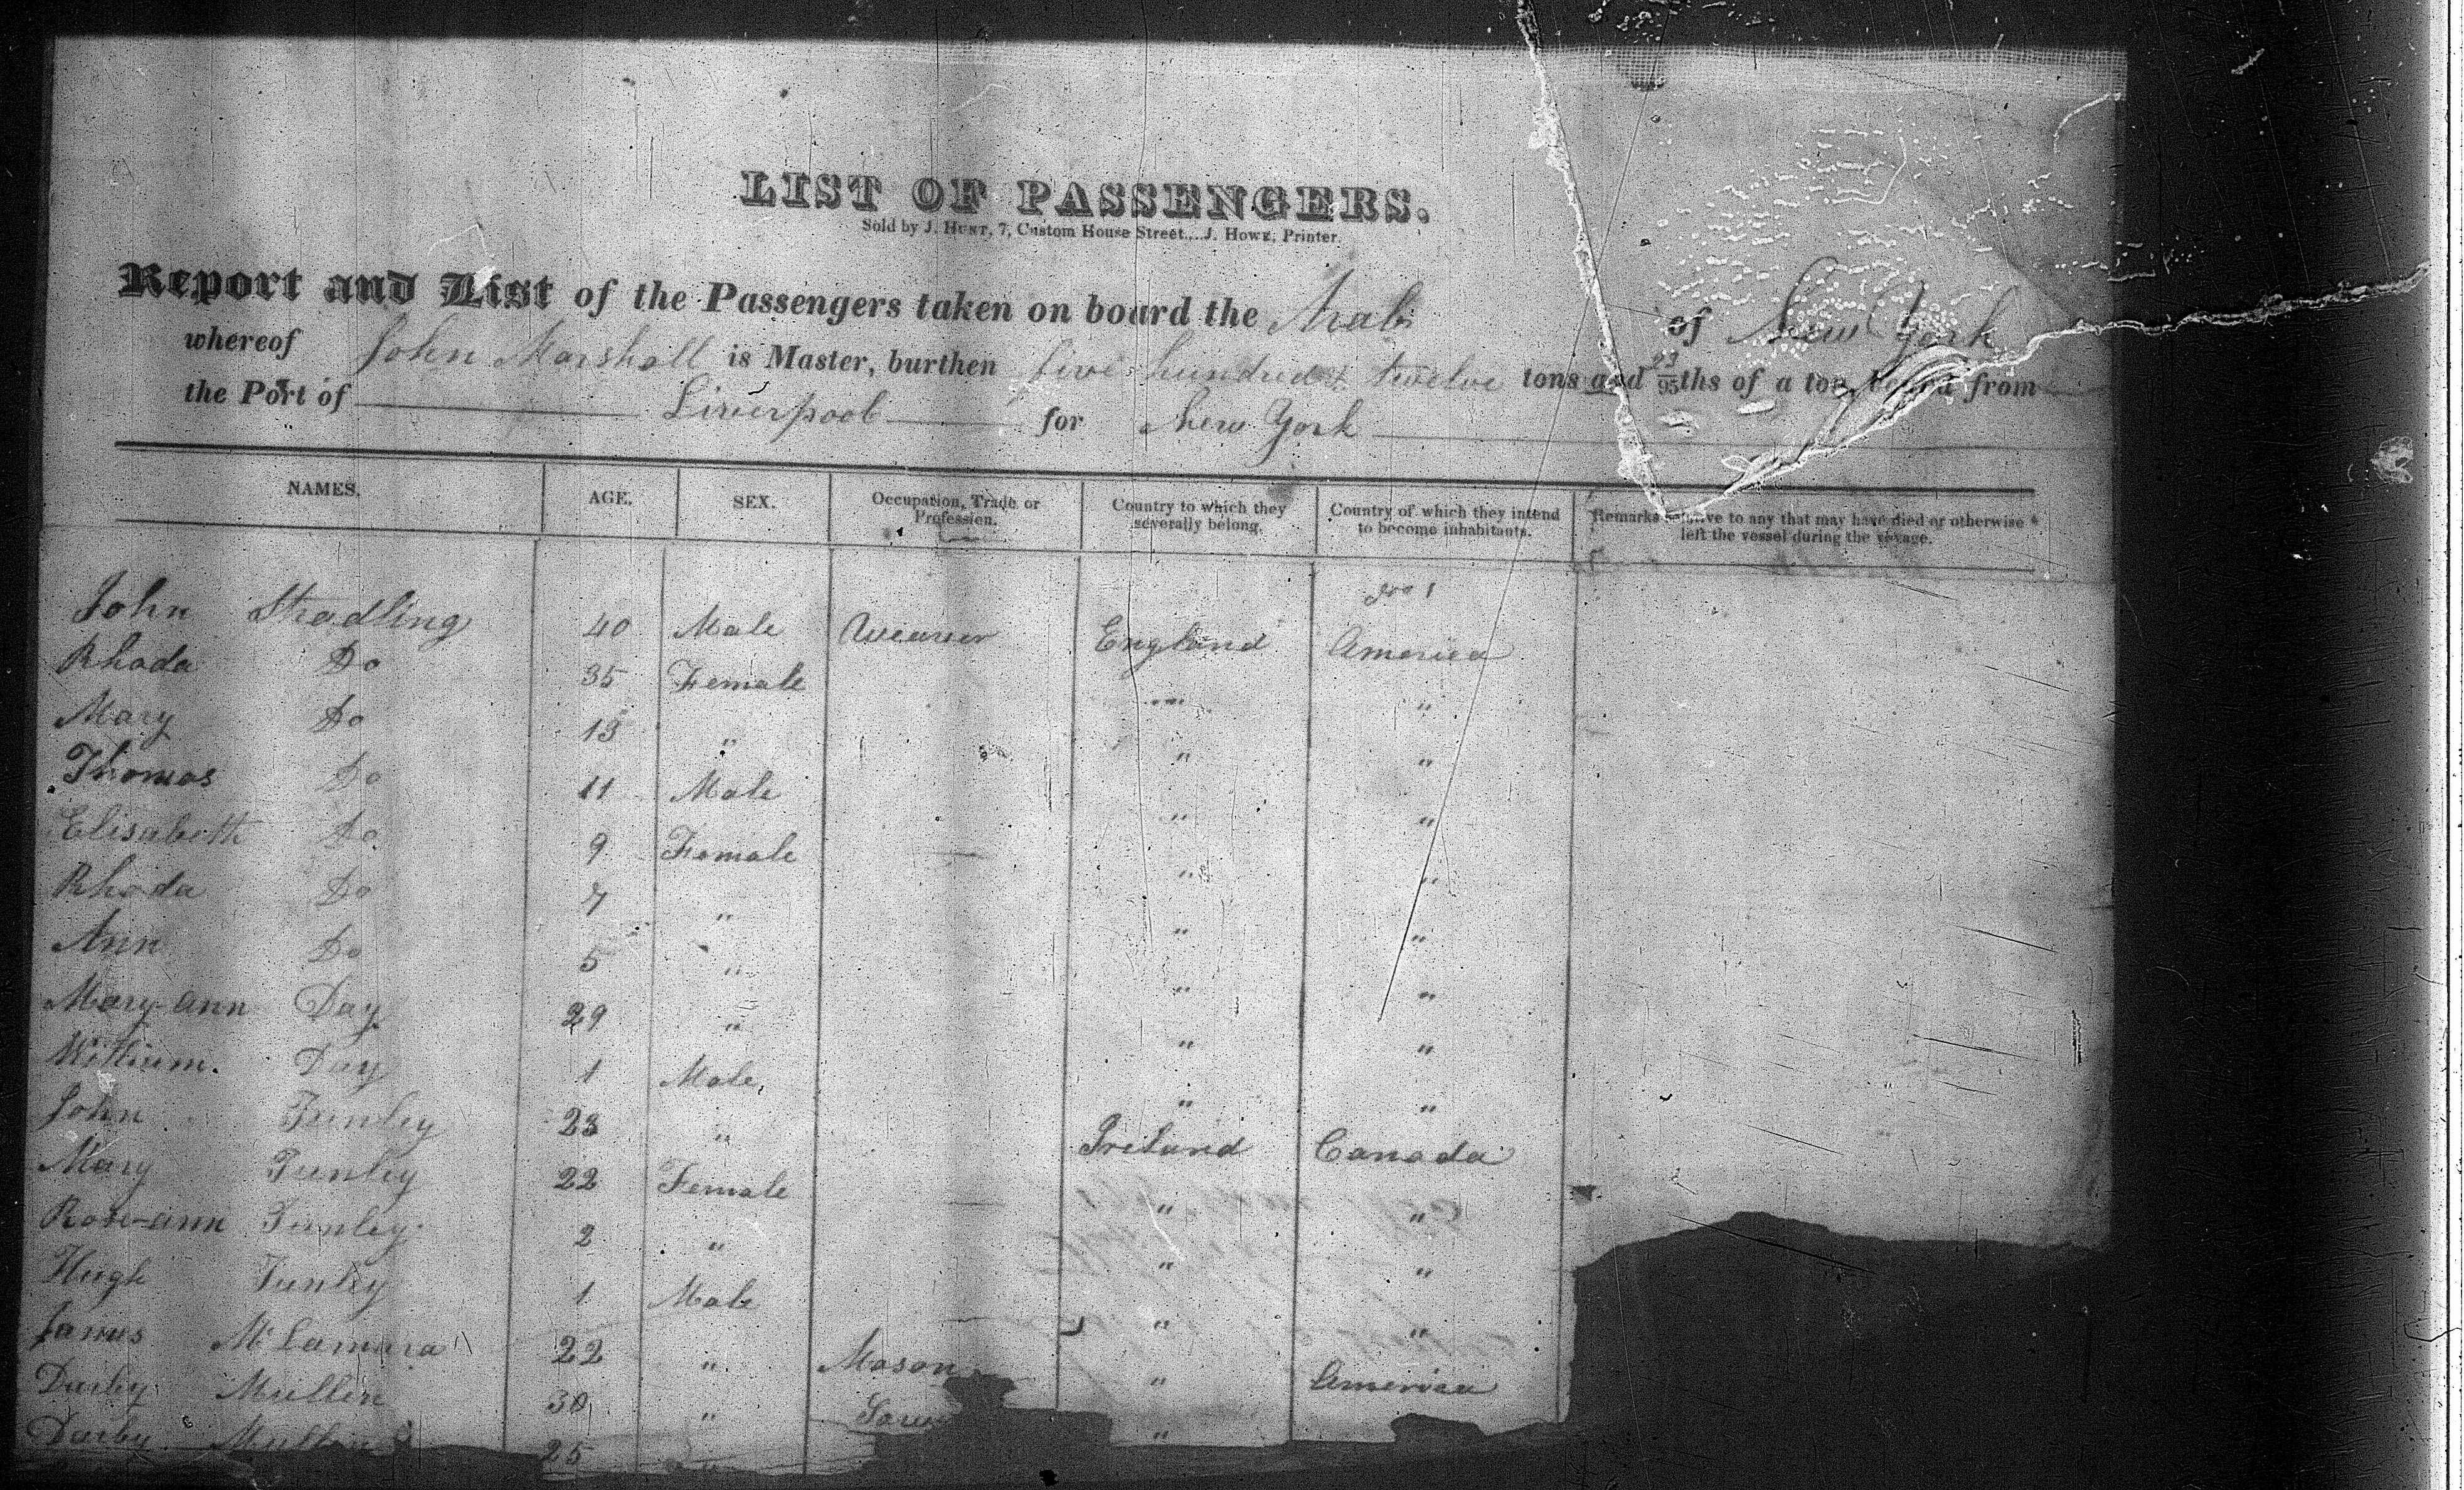 LIST OF PASSENGERS.
Sold by J. HUNT, 7, Custom House Street,...J. HOWE, Printer.
Report and List of the Passengers taken on board the Arab of New York
whereof John Marshall is Master, burthen five hundred & twelve tons and 23/95ths of a ton, bound from
the Port of Liverpool for New York
NAMES. AGE. SEX. Occupation, Trade or Profession. Country to which they severally belong. Country of which they intend to become inhabitants. Remarks relative to any that may have died or otherwise left the vessel during the voyage.
No 1
John Stradling 40 Male Weaver England America
Rhoda Do 35 Female " "
Mary Do 13 " " "
Thomas Do 11 Male " "
Elisabeth Do 9 Female " "
Rhoda Do 7 " " "
Ann Do 5 " " "
Mary-Ann Day 29 " " "
William Day 1 Male " "
John 23 " Ireland Canada
Mary 22 Female " "
Rose-ann 2 " " "
Hugh 1 Male " "
James 22 " Mason " America
Darby Mullen 30 " "
Darby Mullen 25